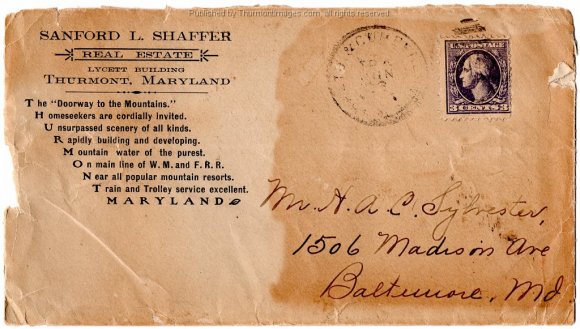 Published by Thurmontimages.com, all rights reserved
SANFORD L. SHAFFER
REAL ESTATE
LYCETT BUILDING
THURMONT, MARYLAND
The "Doorway to the Mountains."
Homeseekers are cordially invited.
Unsurpassed scenery of all kinds.
Rapidly building and developing.
Mountain water of the purest.
On main line of W. M. and F. R. R.
Near all popular mountain resorts.
Train and Trolley service excellent.
MARYLAND
U.S. POSTAGE
3 CENTS 3
Mr. H. A. C. Sylvester,
1506 Madison Ave
Baltimore, Md.